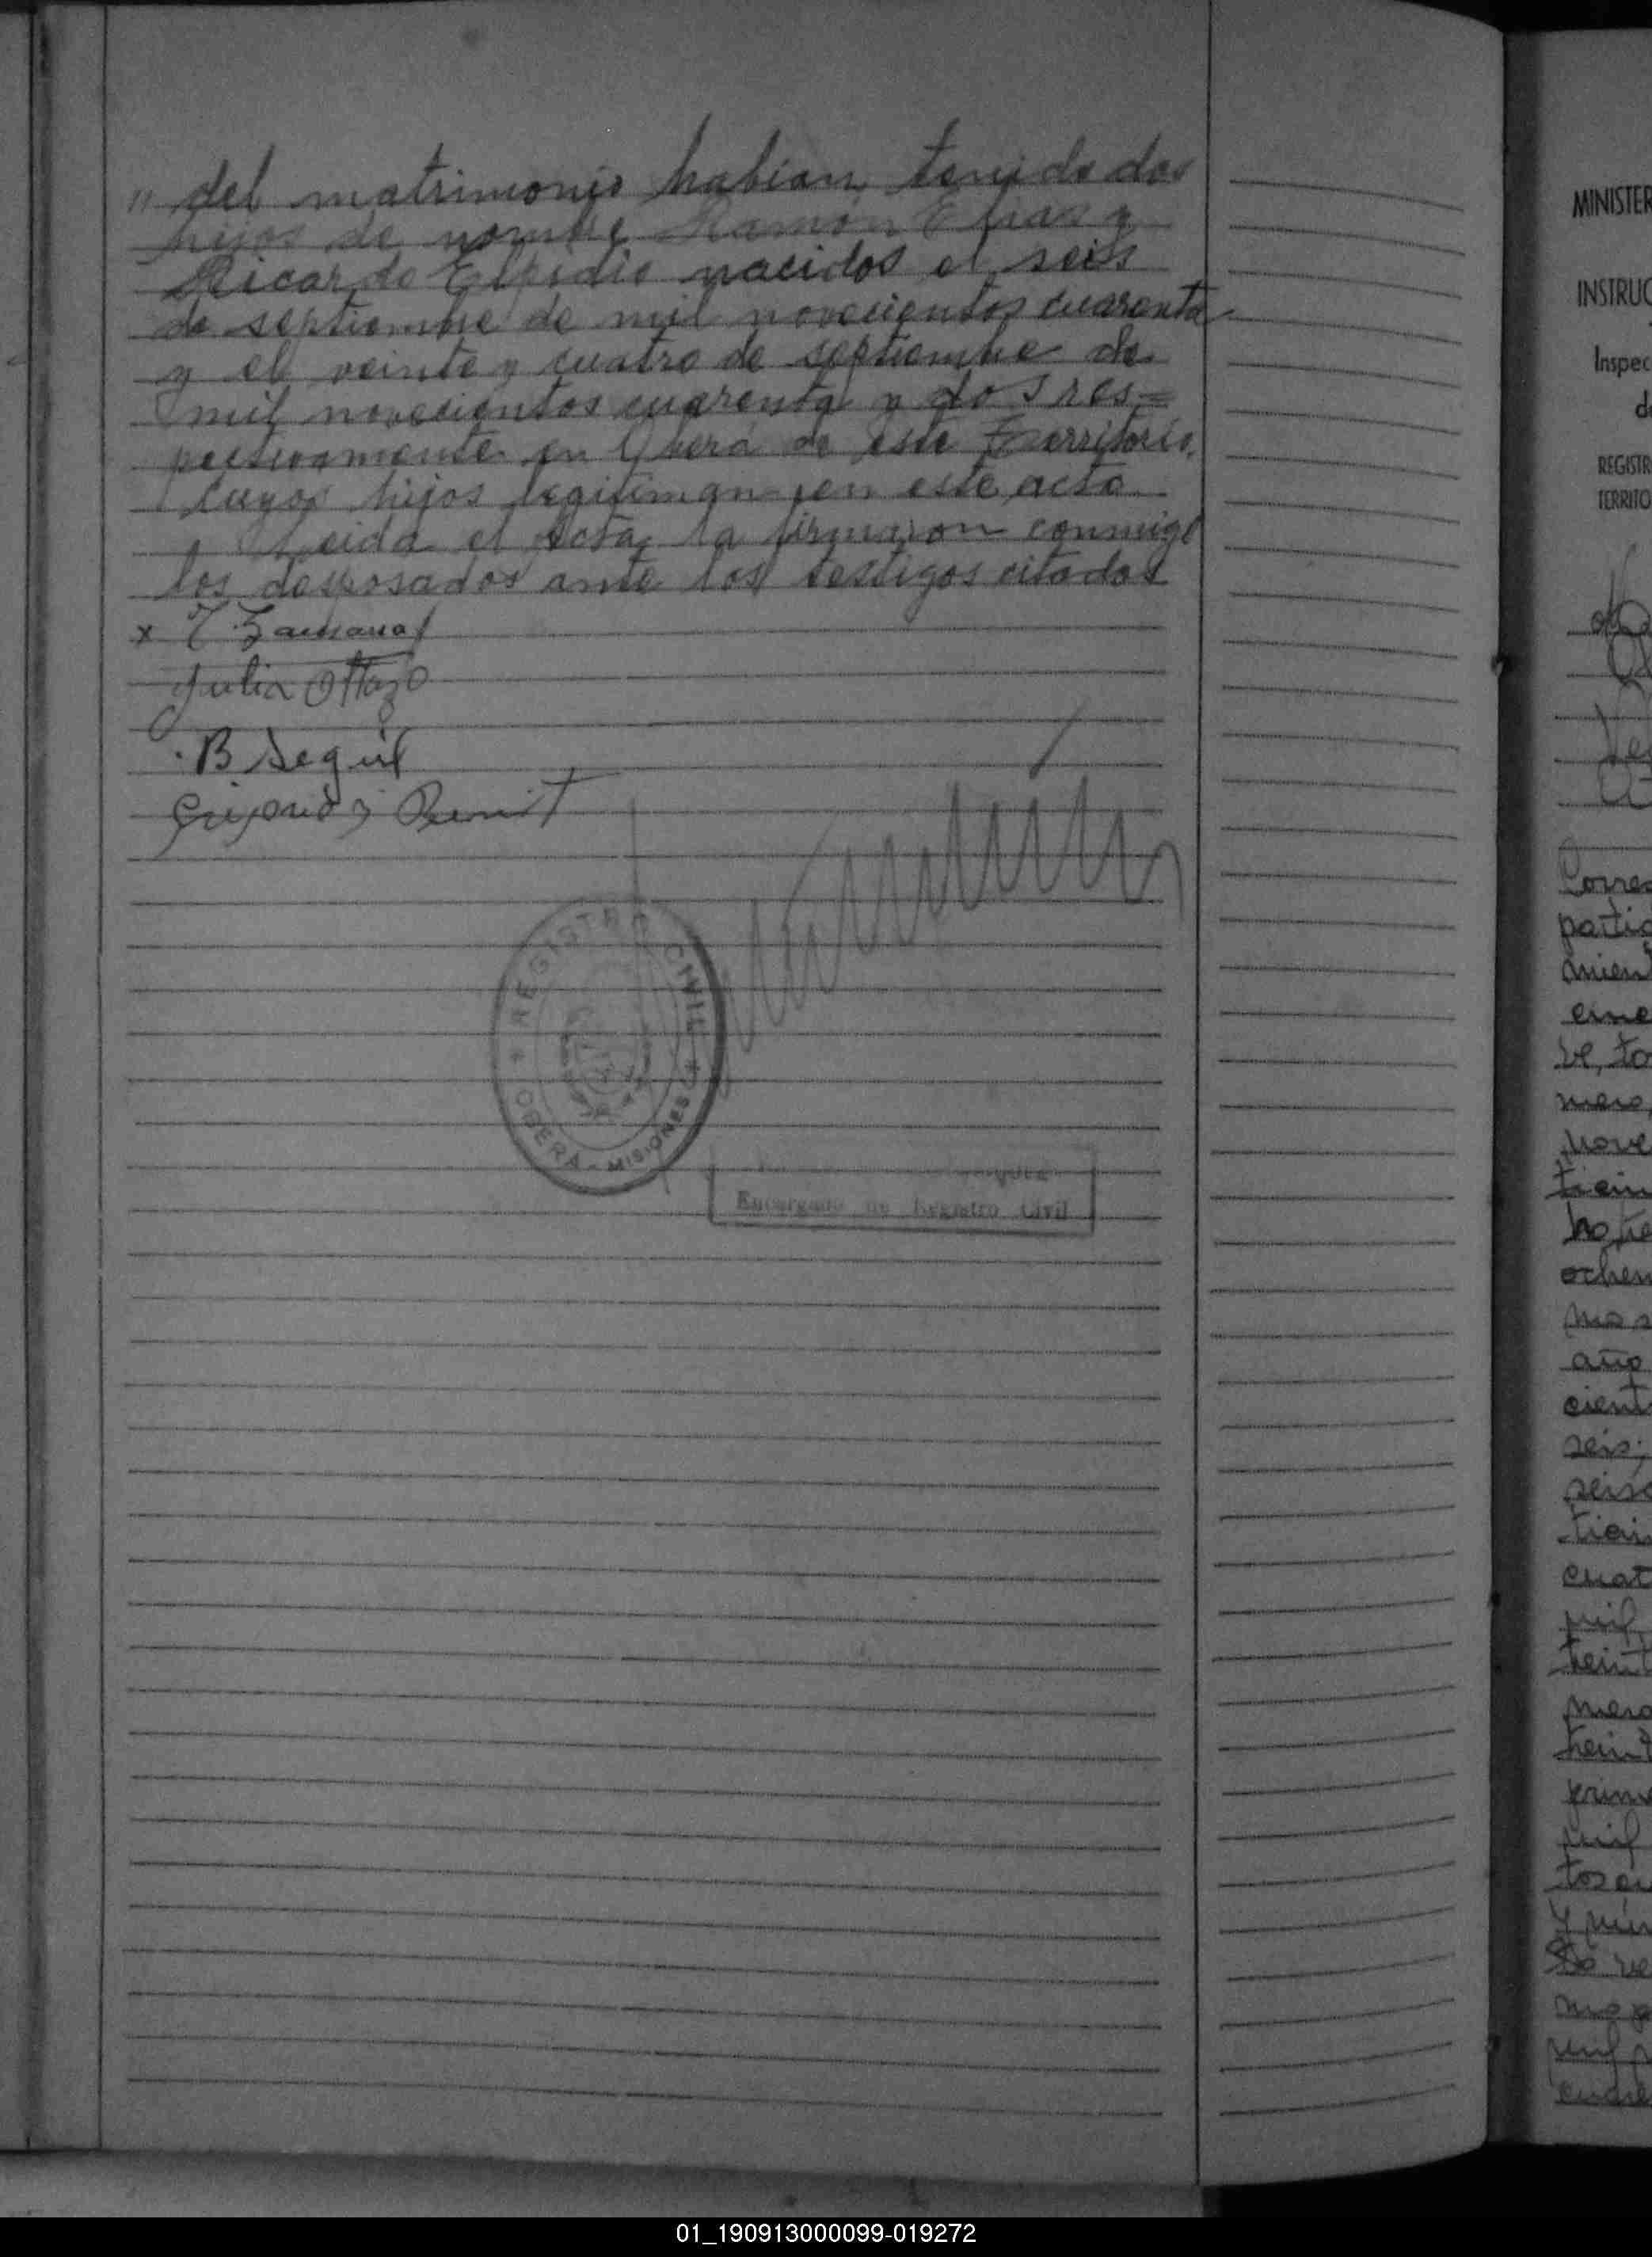 " del matrimonio habian tenido dos
hijos de nombre Ramón Elias y
Ricardo Elpidio nacidos el seis
de septiembre de mil novecientos cuarenta
y el veinte y cuatro de septiembre de
mil novecientos cuarenta y dos res=
pectivamente en Oberá de este Territorio,
cuyos hijos legitiman en este acto.
Leida el Acta, la firmaron conmigo
los desposados ante los testigos citados
x
Julia Ottazo
B Seguil
REGISTRO CIVIL
* OBERA - MISIONES *
Encargado de Registro Civil
MINISTER
INSTRUC
Inspec
de
REGISTR
TERRITO
Corres
partid
mien
cinc
ve, to
mero
nove
tiem
ochen
mo s
año
cient
seis;
seisc
cuat
mil
treint
mero
treint
prime
mil
01_190913000099-019272